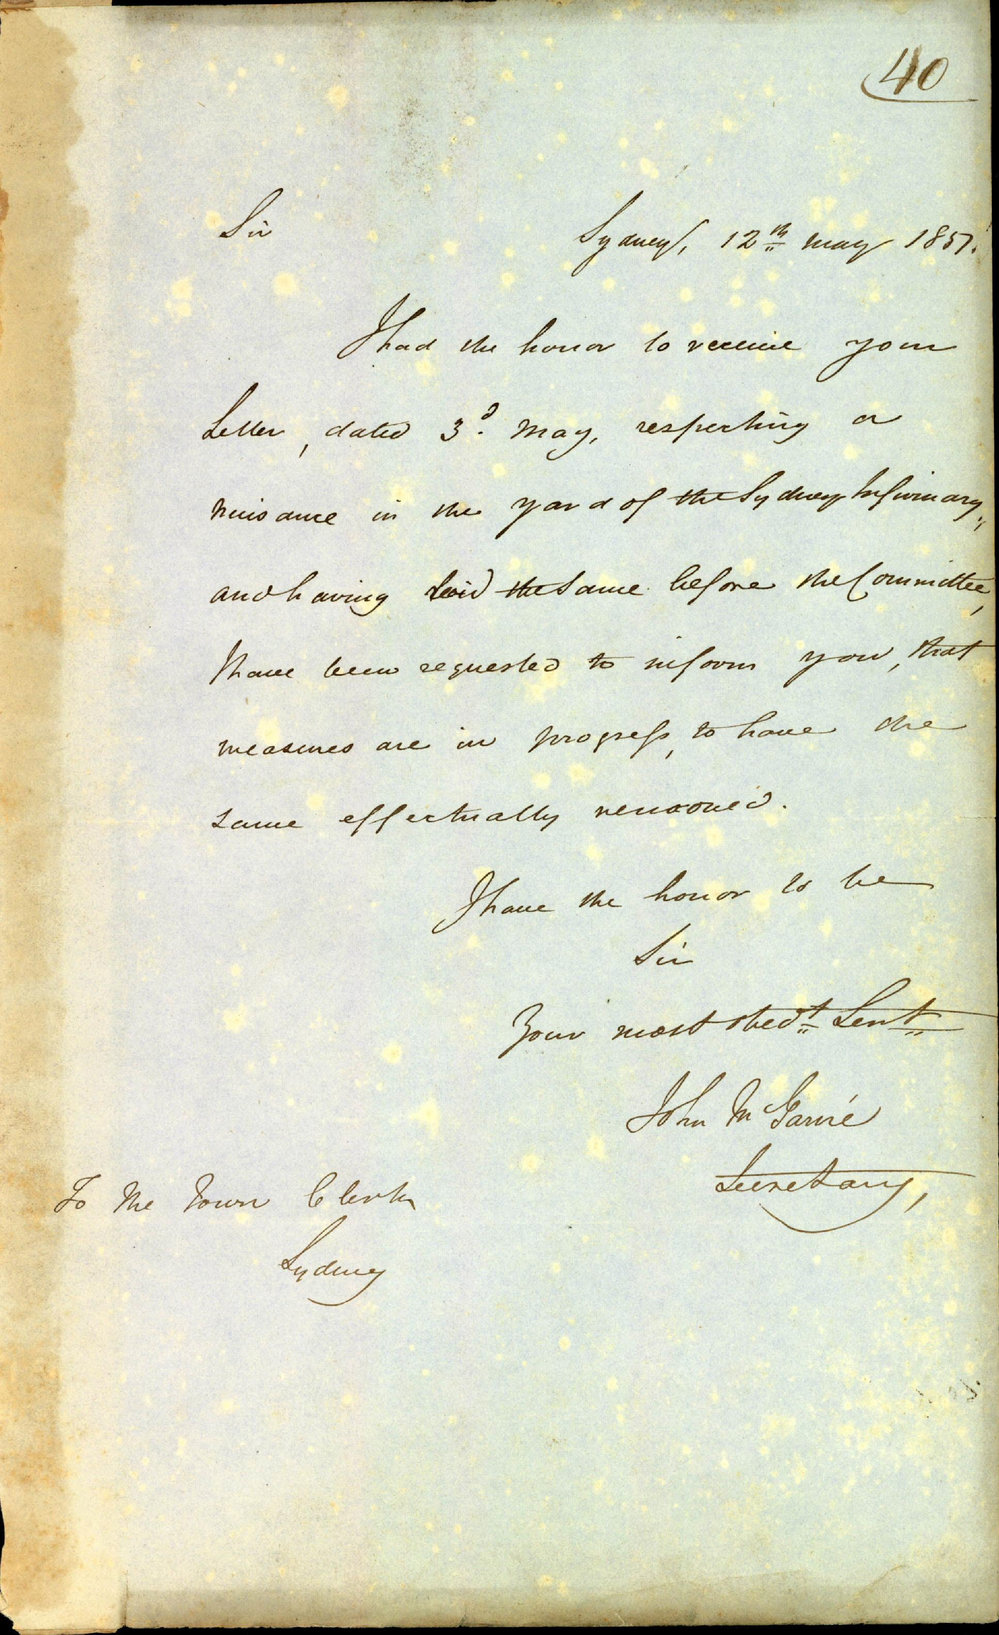 40
Sir Sydney, 12th May 1851.
I had the honor to receive your
Letter, dated 3d. May, respecting a
nuisance in the yard of the Sydney Infirmary,
and having laid the same before the Committee,
I have been requested to inform you, that
measures are in progress, to have the
same effectually removed.
I have the honor to be
Sir
Your most obedt Servt
John McGarvie
Secretary,
To the Town Clerk
Sydney